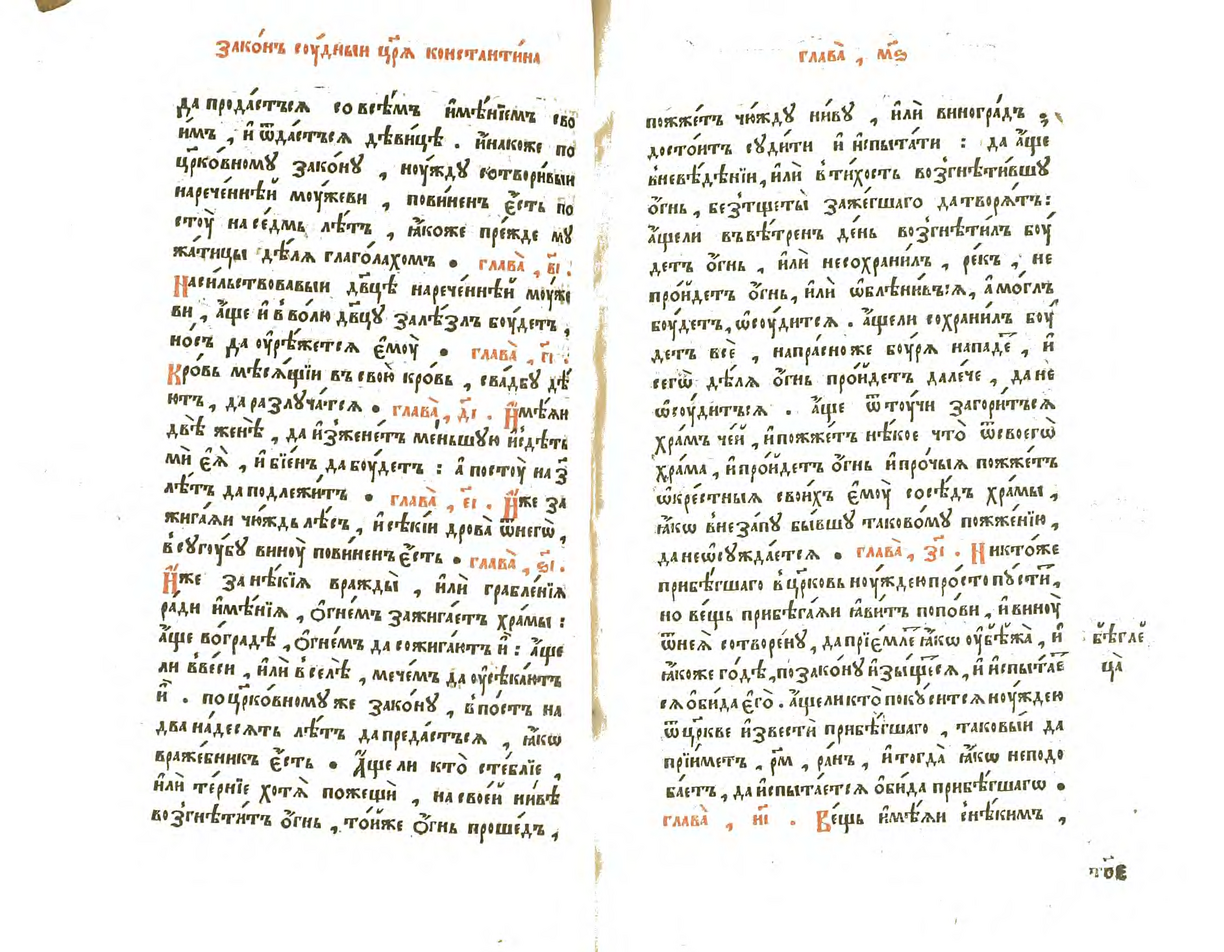 Зако́нъ сꙋ́дныи цр҃ѧ̀ константи́на
да прода́стъсѧ со всѣ́мъ и҆мѣ́нїемъ сво
и́мъ , и҆ ѿда́стъсѧ дѣви́цѣ . и҆на́коже по
цр҃ко́вномꙋ зако́нꙋ , ноу́ждꙋ сотвори́выи
нарече́ннѣй моу́жеви , пови́ненъ є҆́сть по
стоу̀ на се́дмь лѣ́тъ , ꙗ҆́коже пре́жде мꙋ
жа́тицы дѣ́лѧ глаго́лахомъ • глава̀ , в҃і .
Наси́льствовавыи дв҃цѣ нарече́ннѣй моу́же
ви , а҆́ще и҆ в во́лю дв҃цꙋ залѣ́злъ бꙋ́детъ ,
но́съ да оу҆рѣ́жетсѧ є҆моу̀ • глава̀ , г҃і .
Кро́вь мѣсѧ́щїи въ свою̀ кро́вь , сва́дбꙋ дѣ́
ютъ , да разлꙋча́тсѧ • глава̀ , д҃і . И҆мѣ́ѧи
двѣ̀ женѣ̀ , да и҆зжене́тъ ме́ньшꙋю и҆ з дѣтъ
мѝ є҆ѧ̀ , и҆ бїе́нъ да бꙋ́детъ : а҆ постоу̀ на з҃
лѣ́тъ да подлежи́тъ • глава̀ , е҃і . И҆́же за
жига́ѧи чю́ждь лѣ́съ , и҆ сѣкі́и дрова̀ ѿ негѡ̀ ,
в сꙋгоу́бꙋ виноу̀ пови́ненъ є҆́сть • глава̀ , ѕ҃і .
И҆́же за нѣ́кїѧ вражды̀ , и҆лѝ грабле́нїѧ
ра́ди и҆мѣ́нїѧ , ѻ҆гне́мъ зажига́етъ хра́мы :
а҆́ще во гра́дѣ , ѻ҆гне́мъ да сожига́ютъ и҆̀ : а҆́ще
ли в ве́си , и҆лѝ в селѣ̀ , мече́мъ да оу҆сѣка́ютъ
и҆̀ . по цр҃ко́вномꙋ же зако́нꙋ , в по́стъ на
два на́десѧть лѣ́тъ да преда́стъсѧ , ꙗ҆́кѡ
враже́бникъ є҆́сть • А҆́ще ли кто̀ сте́блїе ,
и҆лѝ те́рнїе хотѧ̀ пожещѝ , на свое́й ни́вѣ
возгнѣти́тъ ѻ҆́гнь , то́йже ѻ҆́гнь проше́дъ ,
глава̀ , м҃ѕ
пожже́тъ чю́ждꙋ ни́вꙋ , и҆лѝ виногра́дъ ,
досто́итъ сꙋди́ти и҆ и҆спыта́ти : да а҆́ще
в невѣ́дѣнїи , и҆лѝ в ти́хость возгнѣти́вшꙋ
ѻ҆́гнь , без тщеты̀ заже́гшаго да творѧ́тъ :
а҆́ще ли въ вѣ́тренъ де́нь возгнѣти́лъ бꙋ́
детъ ѻ҆́гнь , и҆лѝ не сохрани́лъ , ре́къ , не
про́йдетъ ѻ҆́гнь , и҆лѝ ѡ҆блѣни́въсѧ , а҆ мо́глъ
бꙋ́детъ , ѡ҆сꙋ́дитсѧ . а҆́ще ли сохрани́лъ бꙋ́
детъ всѐ , напра́сно же бꙋ́рѧ напа́де , и҆
сегѡ̀ дѣ́лѧ ѻ҆́гнь про́йдетъ дале́че , да не
ѡ҆сꙋ́дитъсѧ . а҆́ще ѿ тоу́чи загори́тъсѧ
хра́мъ че́й , и҆ пожже́тъ нѣ́кое что̀ ѿ своегѡ̀
хра́ма , и҆ про́йдетъ ѻ҆́гнь и҆ про́чыѧ пожже́тъ
ѡ҆кре́стныѧ свои́хъ є҆моу̀ сосѣ́дъ хра́мы ,
ꙗ҆́кѡ внеза́пꙋ бы́вшꙋ таково́мꙋ пожже́нїю ,
да не ѡ҆сꙋжда́етсѧ • глава̀ , з҃і . Никто́же
прибѣ́гшаго в цр҃ковь ноу́ждею про́сто пꙋсти́ ,
но ве́щь прибѣга́ѧи ꙗ҆ви́тъ попо́ви , и҆ виноу̀
ѿ неѧ̀ сотворе́нꙋ , да прїе́мле ꙗ҆́кѡ оу҆бѣжа̀ , и҆
ꙗ҆́коже го́дѣ , по зако́нꙋ и҆зы́щесѧ , и҆ и҆спыта́е
сѧ ѻ҆би́да є҆го̀ . а҆́ще ли кто̀ покꙋ́ситсѧ ноу́ждею
ѿ цр҃кве и҆звестѝ прибѣ́гшаго , таковы́и да
прїи́метъ , р҃м , ра́нъ , и҆ тогда̀ ꙗ҆́кѡ неподо
ба́етъ , да и҆спыта́етсѧ ѻ҆би́да прибѣ́гшагѡ •
глава̀ , и҃і . Ве́щь и҆мѣ́ѧи с нѣ́кимъ ,
бѣ́гле
ца̀